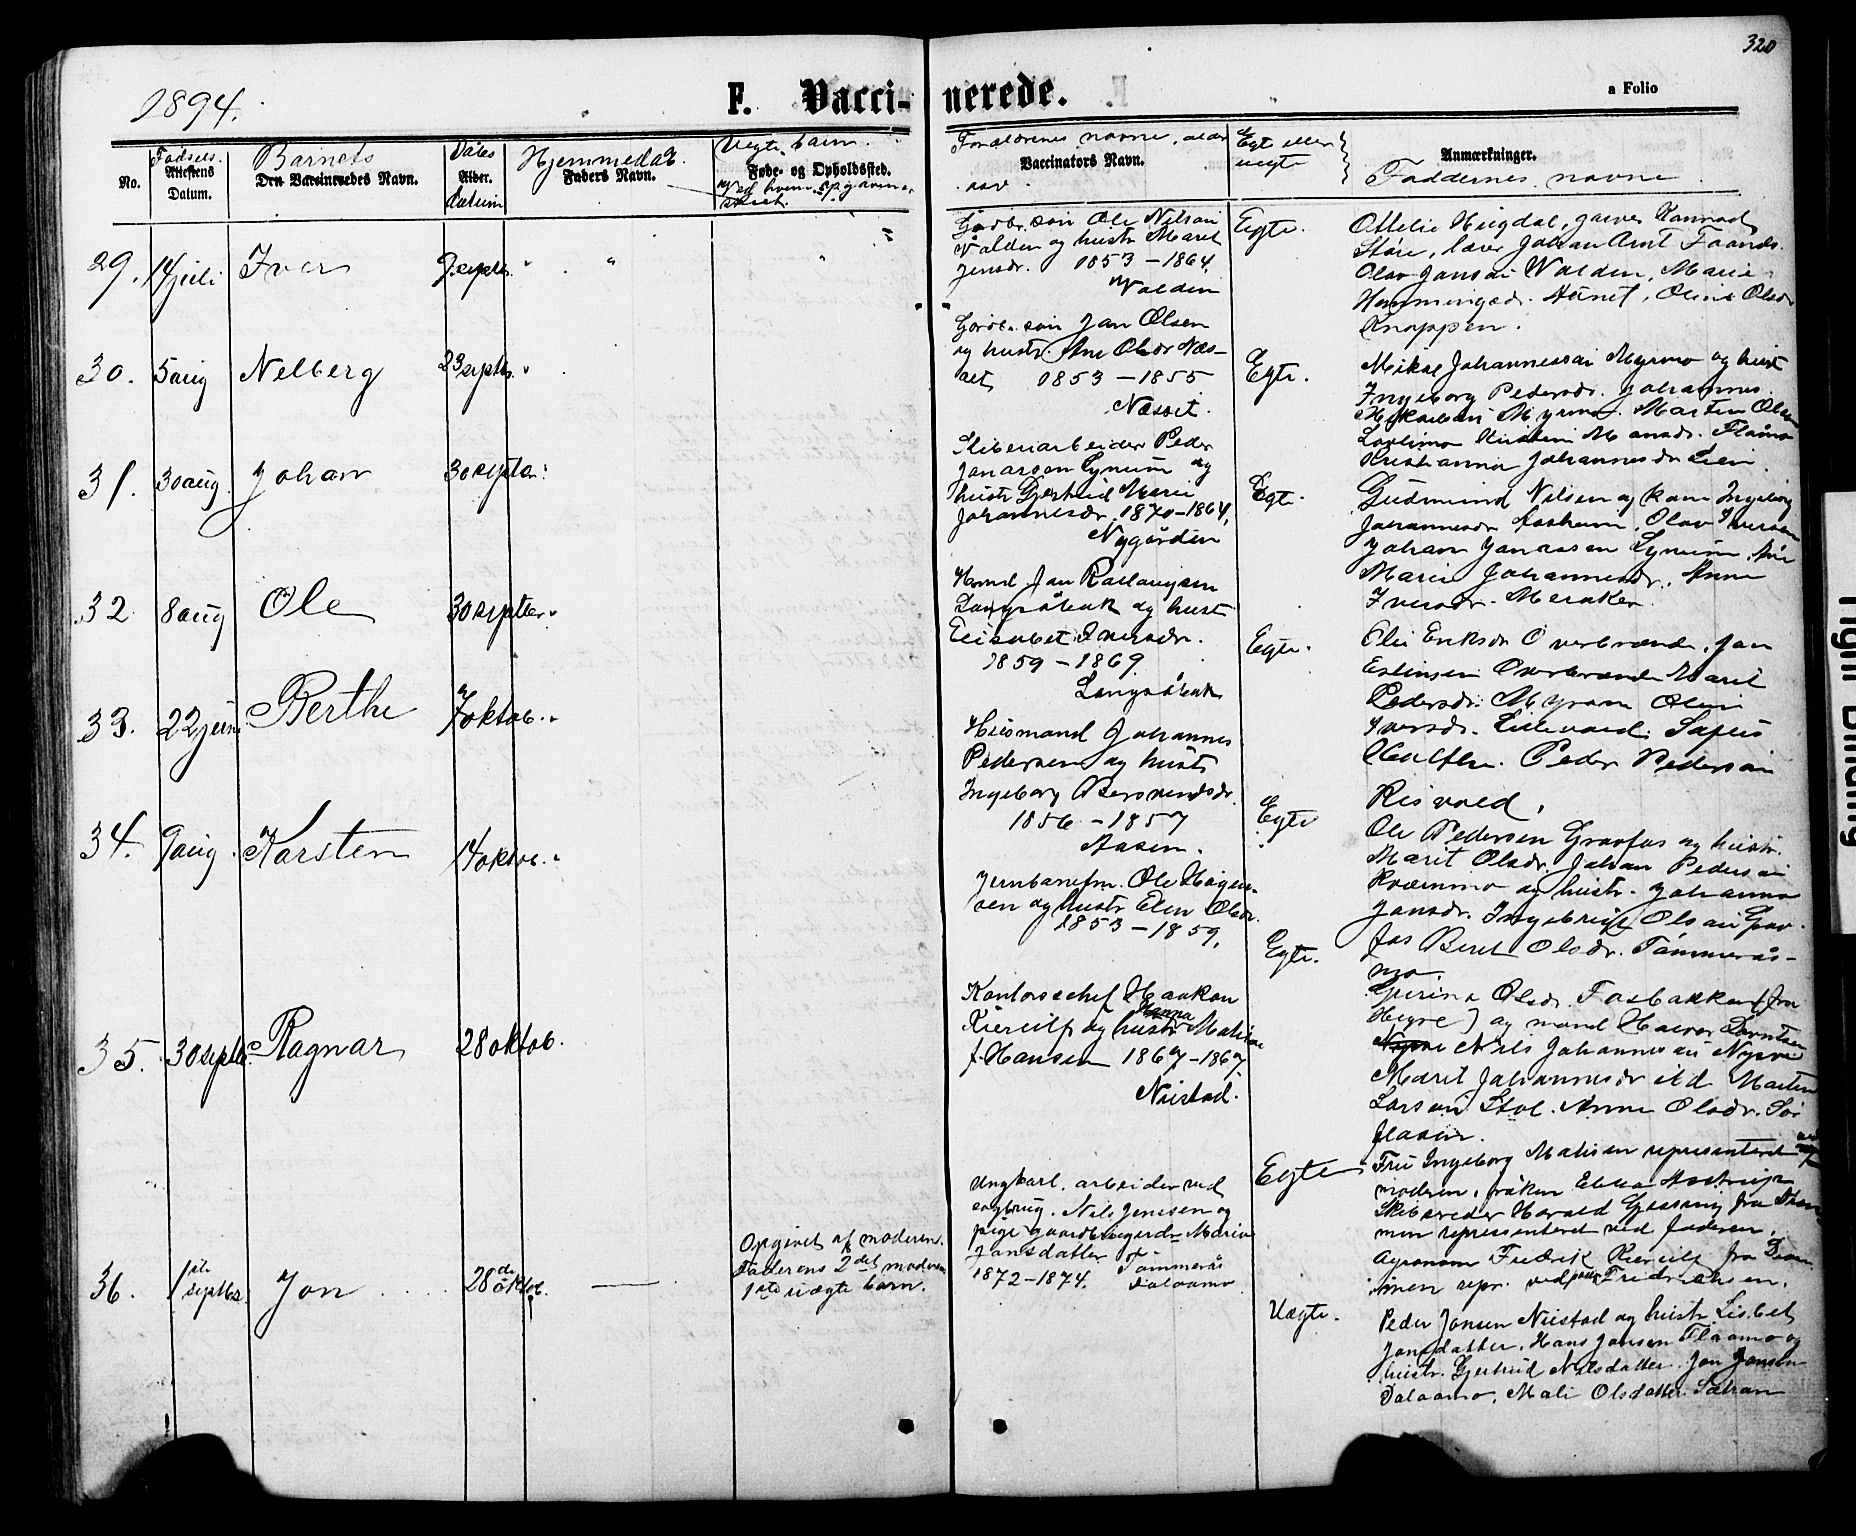 320
1894.
F. Vacci-
nerede.
a Folio
No.
Fødsels.
Attestens
Datum.
Barnets
Den Vaccineredes Navn.
Dåbs
Alder.
Datum
Hjemmedåb.
Faders Navn.
Uegte barn.
Føde- og Opholdssted.
Forældrenes navne, alder
Vaccinators Navn.
Egt eller
uegte
Anmærkninger.
Faddernes navne
29. 14 juli Iver 9 septbr. " "
Gårdbr. søn Ole Nilsen
Valden og hustr. Marit
Jensdr. 1853 - 1864.
Valden
Egte.
Olav Jansen Valden, Marie
Hemmingsdr. Oline Olsdr
Knoppen.
30. 5 aug Nelberg 23 septbr. "
Gårdb. søn Jan Olsen
og hustr. Ane Olsdr Næs-
set 1853 - 1855
Næsset.
Egte.
Mikal Johannessen Myrmo og hust
Ingeborg Pedersdr. Johannes
Mikalsen Myrmo. Marten Olsen
Kristianna Johannesdr Lien.
31. 30 aug. Johan 30 septbr.
Gruberarbeider Peder
Jonarsen Lynum og
hustr Gjertrud Marie
Johannesdr. 1870 - 1864,
Nygården
Egte.
Gudmund Nilsen og kone Ingeborg
Johannesdr. Olav Iversen
Johan Jonassen Lynum,
Marie Johannesdr. Anne
Iversdr. Meraker.
32 8 aug Ole 30 septbr. "
Langsåbak og hust
Elisabet Iversdr.
1859 - 1869
Langsåbak
Egte.
Ole Eriksdr Overbrænde, Jan
Estensen Overbrænde Marit
Pedersdr. Myrmo Olin
Iversdr. Lillevold. Sofie
Peder Pedersen
Risvold.
33. 22 juni Berthe 7 oktob. "
Husmand Johannes
Pedersen og hustr
Ingeborg Bersvendsdr.
1856 - 1857
Aasen.
Egte
Ole Pedersen Gravfos og hustr.
Marit Olsdr. Johan Pedersen
Kvernmo og hustr. Johanna
Jonsdr. Ingebrigt Olsen Grav-
fos Beret Olsdr. Tømmerås-
mo.
34. 9 aug. Karsten 14 oktob. "
Jernbanefm. Ole Hågen-
sen og hustr Elen Olsdr.
1853 - 1859.
Egte.
Gurina Olsdr. Fosbakken (fra
Hegre) og mand Halvor Lorntsen
Nils Johannesen
Marit Johannesdr ibd Marten
Larsen Stol. Anne Olsdr. Sør
flaaen.
35. 30 septbr. Ragnar 28 oktob.
Kontorschef Haakon
Kiærulf og hustr Hanna Mathisen
f. Hansen 1867 - 1867.
Nustad.
Egte
Fru Ingeborg Mathisen representeret ved
moderen, frøken Ebba
Skibsreder Harald Gjessing fra Dram
men representeret ved faderen.
Agronom Fredrik Kiærulf fra Dram
men repr. ved Fredriksen.
36. 1ste septbr. Jon 28de oktob.
Opgivet af moderen.
Faderens 2det moderens
1ste uægte barn.
Ungkarl. arbeider ved
sagbrug. Nils Jensen og
pige gaardbrugerdr. Maria
Jonsdatter Tømmerås
1872 - 1874. Dalaamo
Uægte.
Peder Jonsen Nustad og hustr Lisbet
Jonsdatter. Hans Jonsen Flaamo og
hustr. Gjertrud Nilsdatter. Jon Jonsen
Dalaamo, Mali Olsdatter